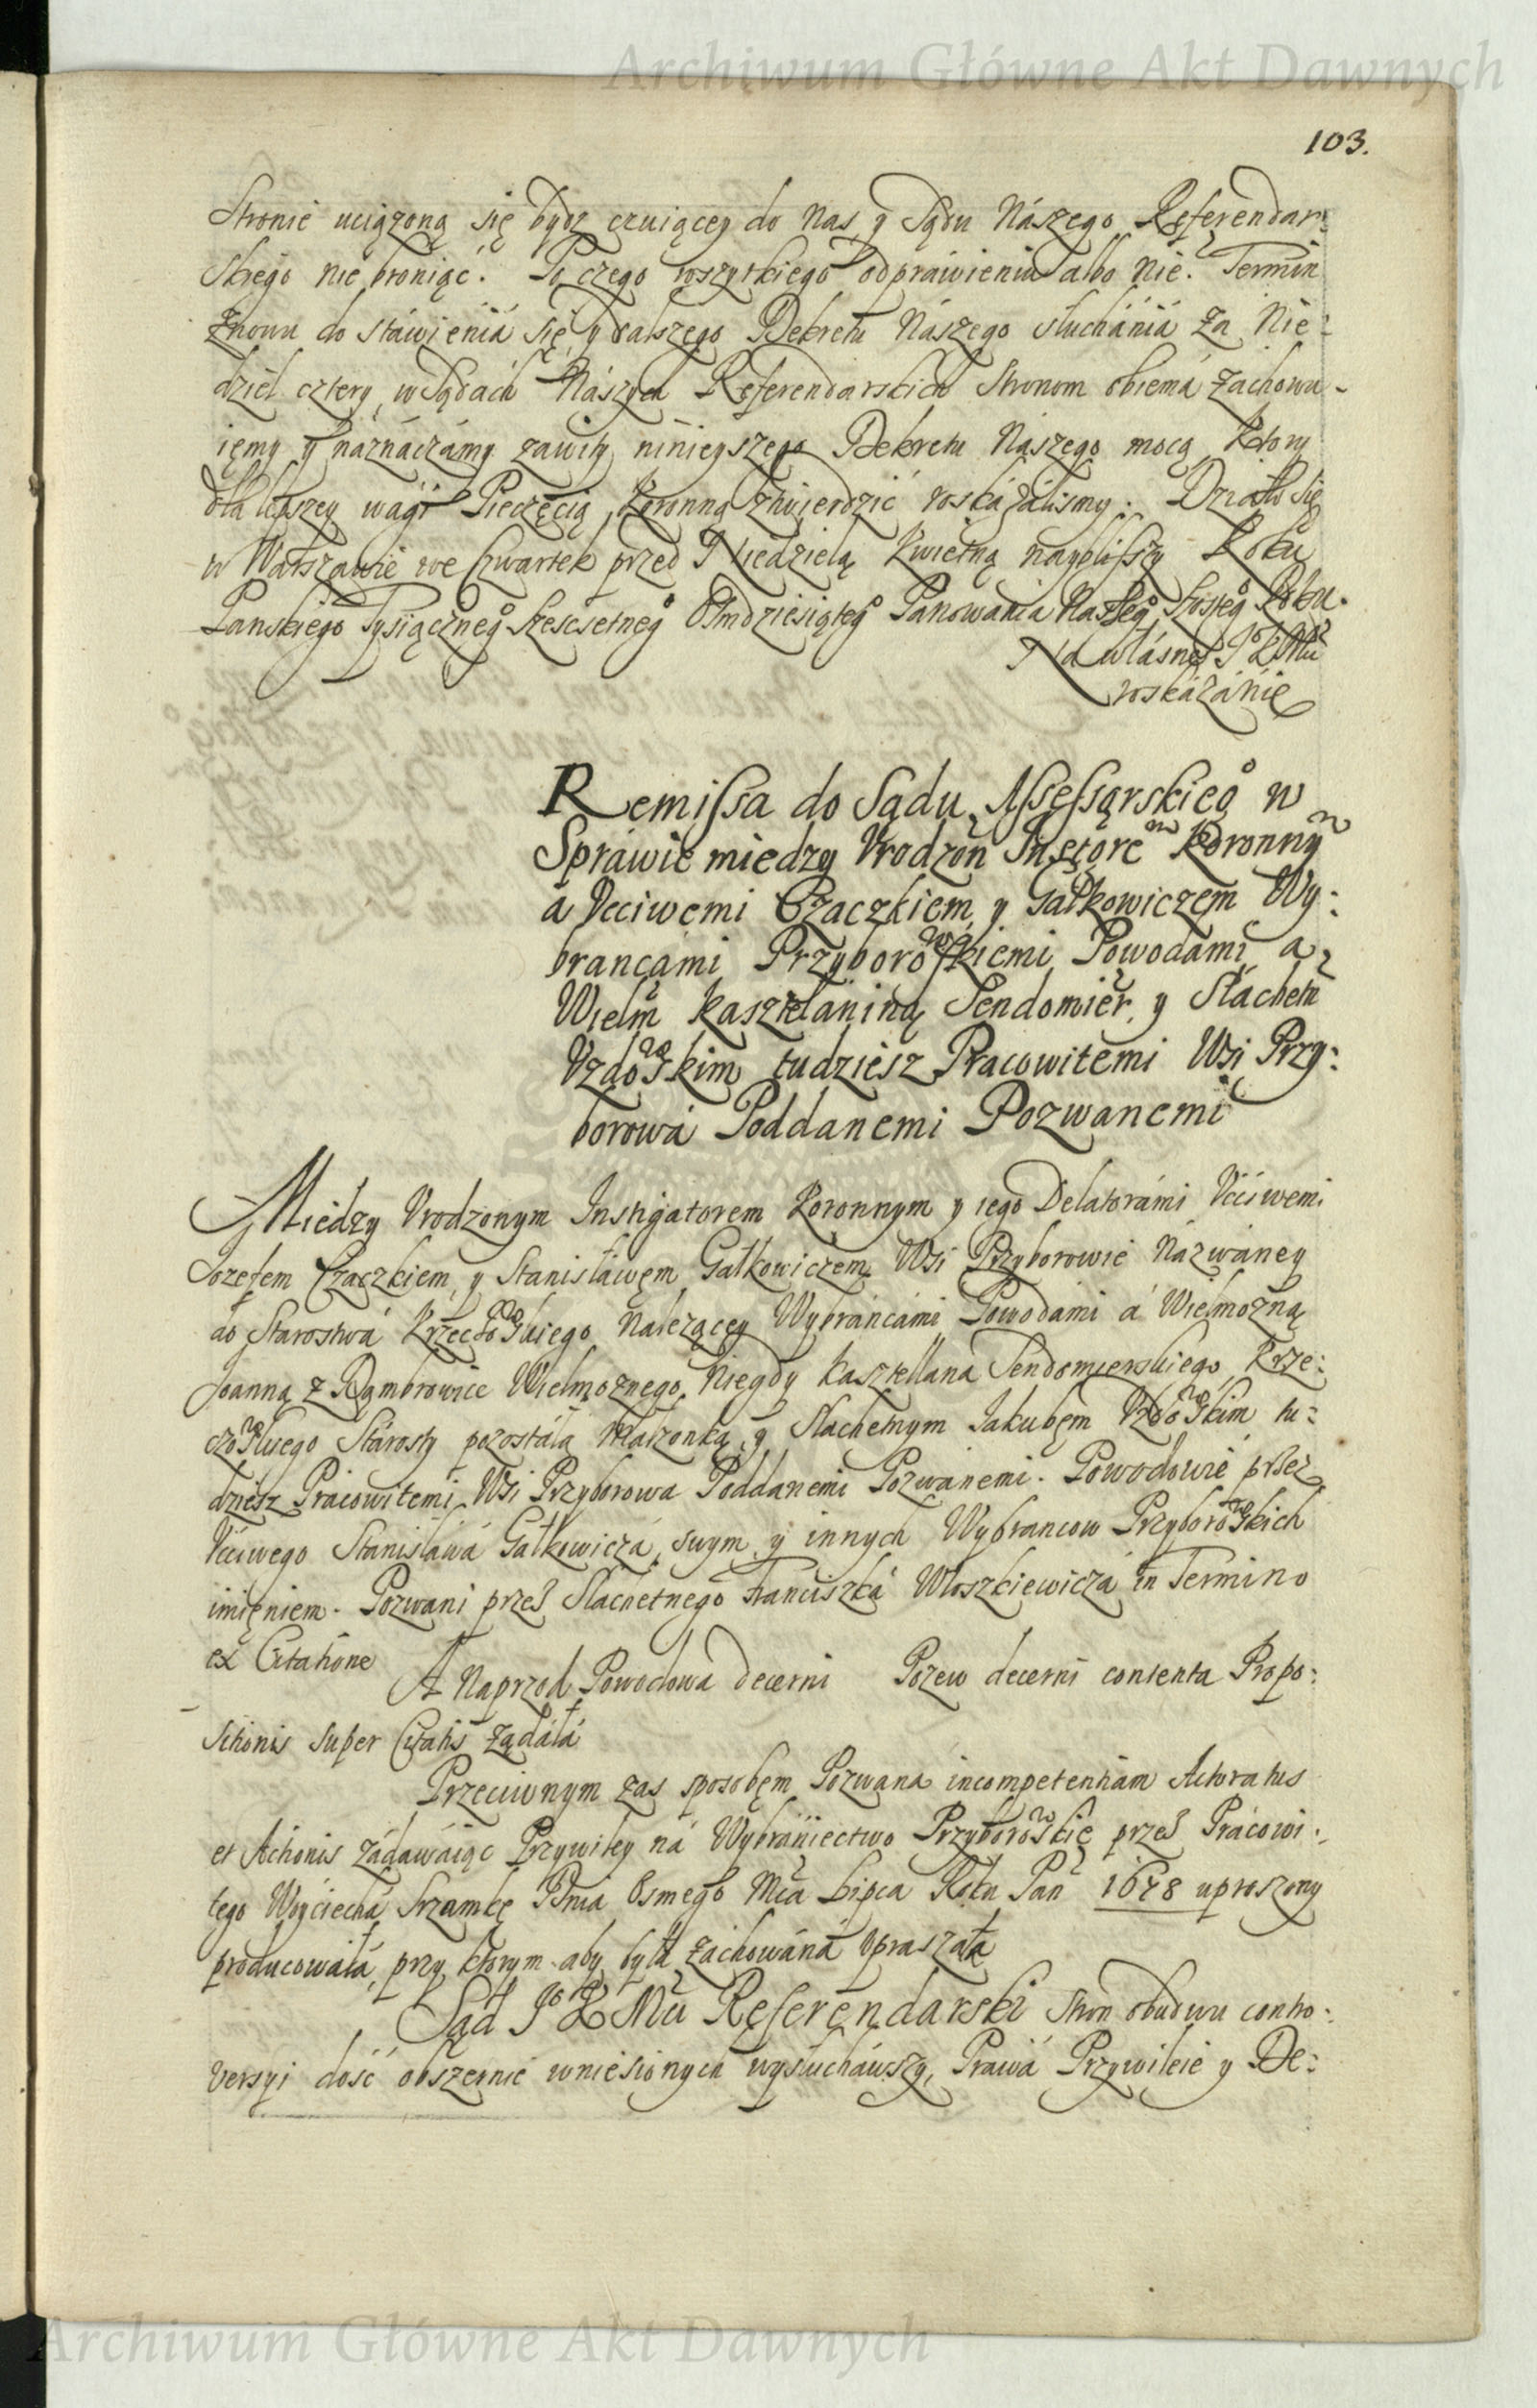 Archiwum Główne Akt Dawnych
103.
Stronie uciązoną się bydz czuiącey do Nas y Sądu Nászego Referendar:
skiego nie broniąc. Po czego wszytkiego odpráwieniu albo nie. Termin
znowu do stáwieniá się y dalszego Dekretu Nászego słuchániá za Nie:
dziel cztery w Sądách Nászych Referendarskich Stronom obiemá zachowu-
iemy y náznáczámy zawity ninieyszego Dekretu Nászego mocą, Ktory
dla lepszey wagi Pieczęcią Koronną ztwierdzić roskázálismy. Dziáło się
w Warszawie we Czwartek przed Niedzielą Kwietną naybliſszy Roku
Panskiego Tysiącznego Szescsetnego Osmdziesiątego Panowania Naszego Szostego Roku.
Na własne JoKMci
roskázánie
Remiſsa do Sądu Aſseſsorskiego w
Spráwie miedzy Vrodzon Instigatorem Koronnym
á Vcciwemi Czaczkiem y Gałkowiczem Wy:
brancámi Przyborowskiemi Powodámi a
Wielm Kasztelaniną Sendomier. y Sláchetn
Vzdowskim tudziesz Pracowitemi Wsi Przy:
borowá Poddanemi Pozwanemi
Miedzy Vrodzonym Instigatorem Koronnym y iego Delatorámi Vcciwemi
Jozefem Czaczkiem, y Stanisławem Gałkowiczem Wsi Przyborowie Názwáney
do Starostwá Krzeczowskiego Nalezącey Wybráncámi Powodámi á Wielmozną
Joanną z Dąmbrowice Wielmoznego Niegdy Kasztellana Sendomierskiego, Krze:
czowskiego Stárosty pozostáłą Małzonką, y Slachetnym Jakubem Vzdowskim tu:
dziesz Pracowitemi Wsi Przyborowa Poddanemi Pozwánemi. Powodowie przez
Vcciwego Stánisłáwá Gałkowiczá, swym y innych Wybrancow Przyborowskich
imięniem. Pozwani przes Slachetnego Franciszká Włoszkiewiczá in Termino
ex Citatione
A Naprzod Powodowa decerni Pozew decerni contenta Propo:
sitionis super Citatis ządáłá
Przeciwnym zas sposobem Pozwana incompetentiam Actoratus
et Actionis zádawáiąc Przywiley ná Wybrániectwo Przyborowskie przes Prácowi:
tego Woyciechá Szumkę Dnia Osmego Mca Lipca Roku Pan 1678 uproszony
producowáłá, przy ktorym aby byłá záchowáná vpraszáła
Sąd JoKMci Referendarski Stron obudwu contro:
versyi dość obszernie wniesionych wysłucháwszy, Prawá Przywileie y De:
Archiwum Główne Akt Dawnych